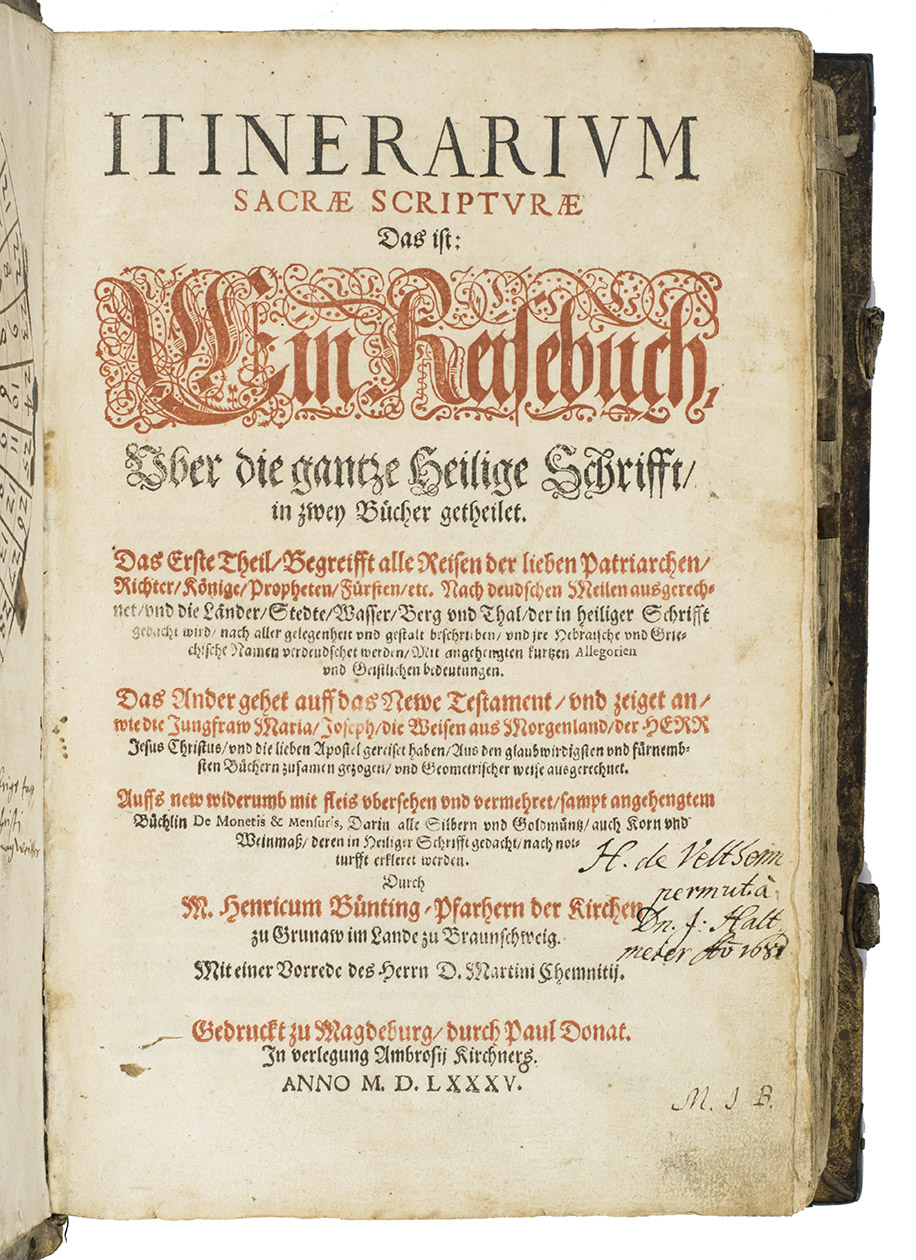 ITINERARIVM
SACRÆ SCRIPTVRÆ
Das ist:
Ein Reisebuch,
Vber die gantze Heilige Schrifft/
in zwey Bücher getheilet.
Das Erste Theil/Begreifft alle Reisen der lieben Patriarchen/
Richter/Könige/Propheten/Fürsten/etc. Nach deudschen Meilen ausgerech-
net/vnd die Länder/Stedte/Wasser/Berg vnd Thal/der in heiliger Schrifft
gedacht wird/nach aller gelegenheit vnd gestalt beschrieben/vnd jre Hebraische vnd Grie-
chische Namen verdeudschet werden/Mit angehengten kurtzen Allegorien
vnd Geistlichen bedeutungen.
Das Ander gehet auff das Newe Testament/vnd zeiget an/
wie die Jungfraw Maria/Joseph/die Weisen aus Morgenland/der HERR
Jesus Christus/vnd die lieben Apostel gereiset haben/Aus den glaubwirdigsten vnd fürnemb-
sten Büchern zusamen gezogen/vnd Geometrischer weise ausgerechnet.
Auffs new widerumb mit fleis vbersehen vnd vermehret/sampt angehengtem
Büchlin De Monetis & Mensuris, Darin alle Silbern vnd Goldmüntz/auch Korn vnd
Weinmaß/deren in Heiliger Schrifft gedacht/nach not-
turfft erkleret werden.
Durch
M. Henricum Bünting/Pfarhern der Kirchen
zu Grunaw im Lande zu Braunschweig.
Mit einer Vorrede des Herrn D. Martini Chemnitij.
H. de Veltheim
permutâ
Dn. J: Halt
meier Aõ 1681
Gedruckt zu Magdeburg/durch Paul Donat.
In verlegung Ambrosij Kirchners.
ANNO M. D. LXXXV.
M. J B.